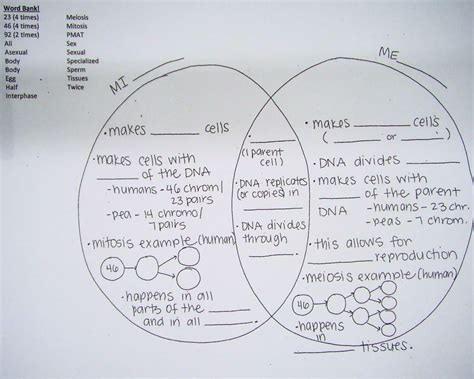 Word Bank!
23 (4 times) Meiosis
46 (4 times) Mitosis
92 (2 times) PMAT
All Sex
Asexual Sexual
Body Specialized
Body Sperm
Egg Tissues
Half Twice
Interphase
MI
ME
• makes ______ cells
• makes cells with
______ of the DNA
- humans - 46 chrom/
23 pairs
- pea - 14 chromo/
7 pairs
• mitosis example (human)
46
• happens in all
parts of the ______
and in all ______
______
(1 parent
cell)
• DNA replicates
(or copies) in
______
• DNA divides
through
______
• makes ______ cells
( ______ or ______ )
• DNA divides ______
• makes cells with
______ of the parent
DNA - humans - 23 chr.
- peas - 7 chrom.
• this allows for
______ reproduction
• meiosis example (human)
46
• happens
in ______ tissues.